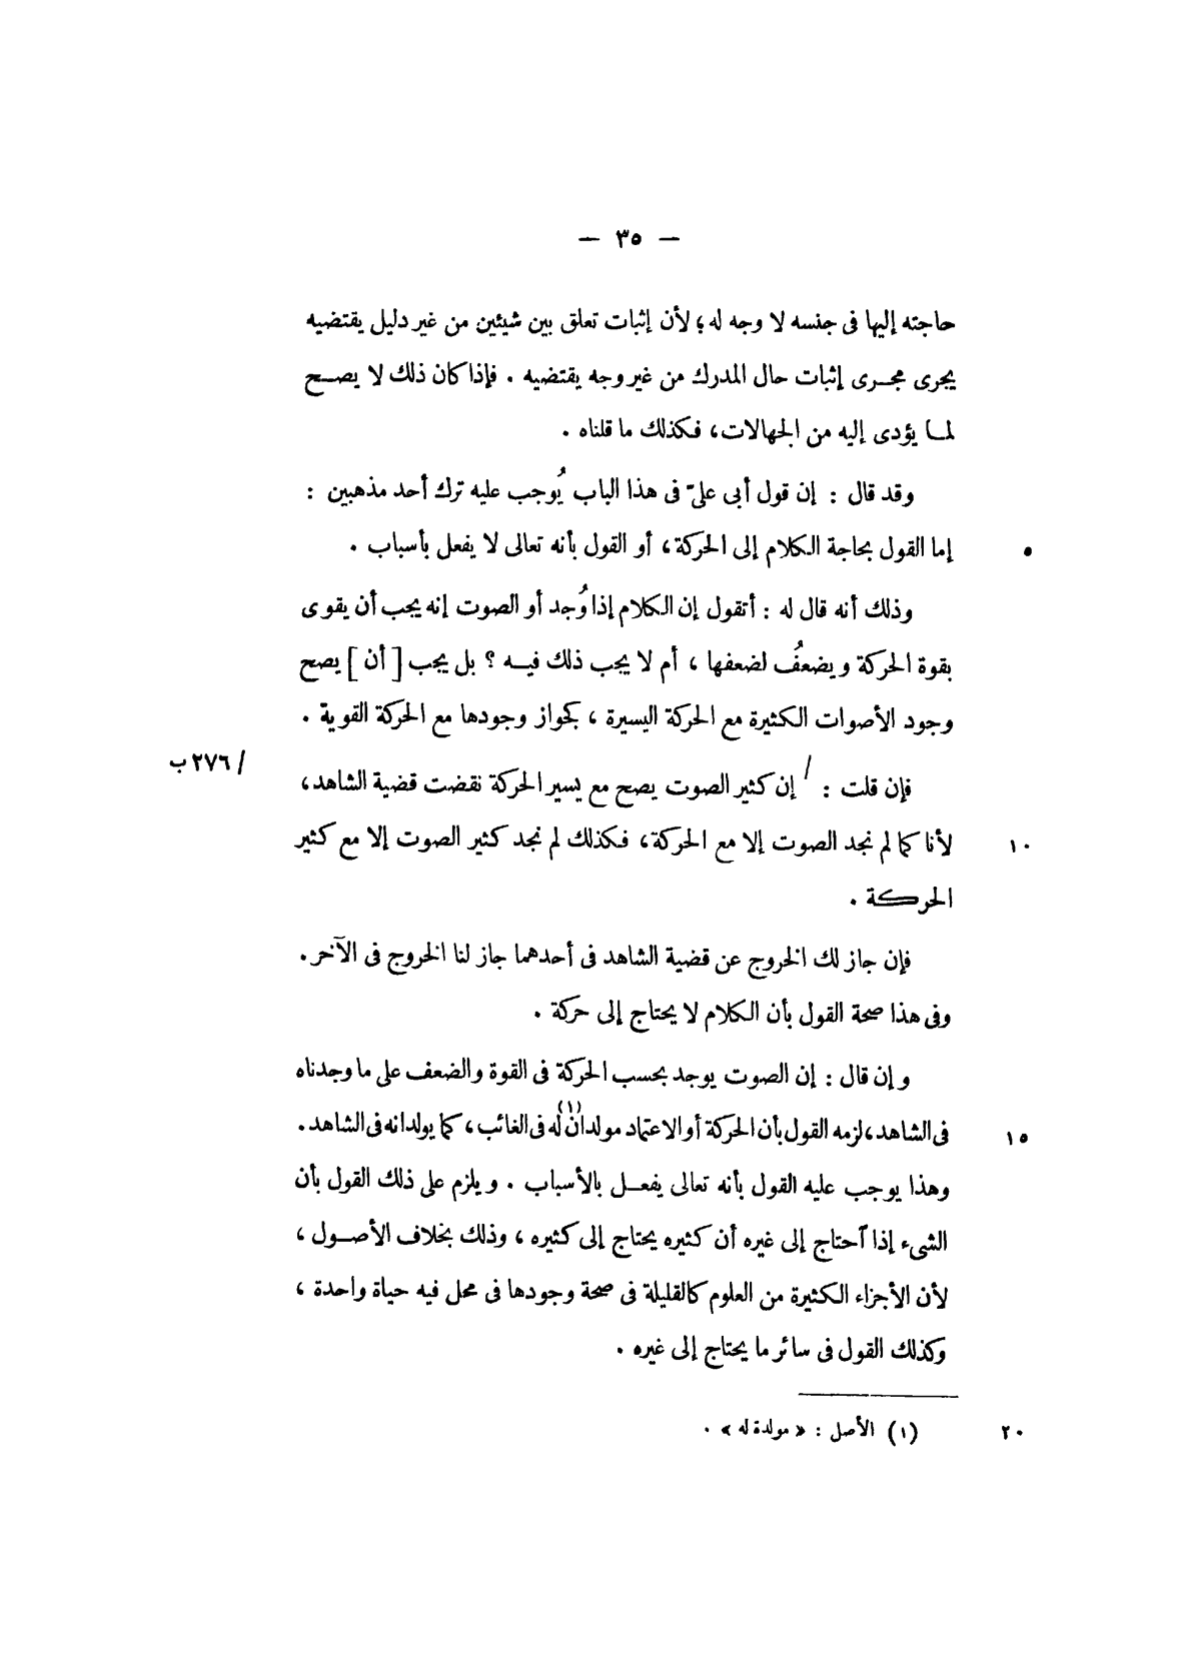 — ٣٥ —
حاجته إليها فى جنسه لا وجه له ؛ لأن إثبات تعلق بين شيئين من غير دليل يقتضيه
يجرى مجـرى إثبات حال المدرك من غير وجه يقتضيه . فإذا كان ذلك لا يصـح
لمـا يؤدى إليه من الجهالات، فكذلك ما قلناه .
وقد قال : إن قول أبى علىّ فى هذا الباب يُوجب عليه ترك أحد مذهبين :
إما القول بحاجة الكلام إلى الحركة، أو القول بأنه تعالى لا يفعل بأسباب . ٥
وذلك أنه قال له : أتقول إن الكلام إذا وُجد أو الصوت إنه يجب أن يقوى
بقوة الحركة ويضعفُ لضعفها ، أم لا يجب ذلك فيـه ؟ بل يجب [ أن ] يصح
وجود الأصوات الكثيرة مع الحركة اليسيرة ، كجواز وجودها مع الحركة القوية .
فإن قلت : / إن كثير الصوت يصح مع يسير الحركة نقضت قضية الشاهد، / ٢٧٦ ب
لأنا كما لم نجد الصوت إلا مع الحركة، فكذلك لم نجد كثير الصوت إلا مع كثير ١٠
الحركـة .
فإن جاز لك الخروج عن قضية الشاهد فى أحدهما جاز لنا الخروج فى الآخر.
وفى هذا صحة القول بأن الكلام لا يحتاج إلى حركة .
وإن قال : إن الصوت يوجد بحسب الحركة فى القوة والضعف على ما وجدناه
فى الشاهد، لزمه القول بأن الحركة أو الاعتماد مولدان (١) له فى الغائب، كما يولدانه فى الشاهد. ١٥
وهذا يوجب عليه القول بأنه تعالى يفعـل بالأسباب . ويلزم على ذلك القول بأن
الشىء إذا آحتاج إلى غيره أن كثيره يحتاج إلى كثيره ، وذلك بخلاف الأصـول ،
لأن الأجزاء الكثيرة من العلوم كالقليلة فى صحة وجودها فى محل فيه حياة واحدة ،
وكذلك القول فى سائر ما يحتاج إلى غيره .
(١) الأصل : « مولدة له » . ٢٠